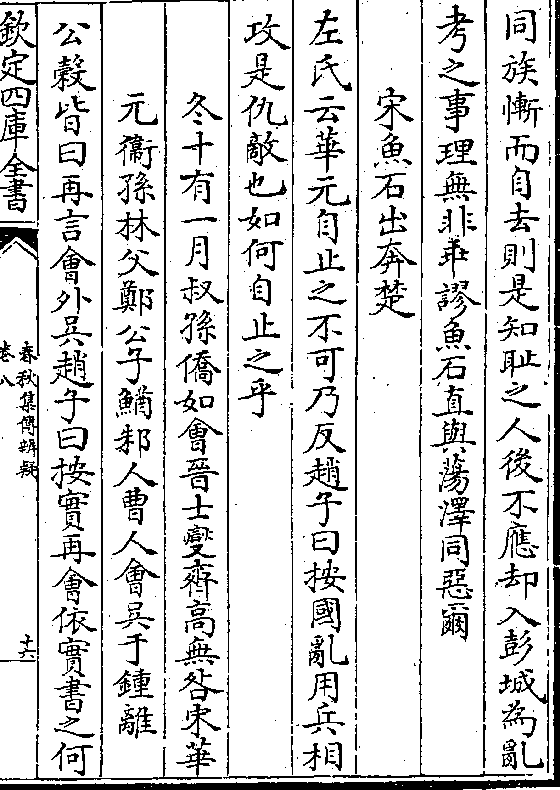 同族慚而自去則是知耻之人後不應却入彭城為亂
考之事理無非乖謬魚石直與蕩澤同惡爾
宋魚石出奔楚
左氏云華元自止之不可乃反趙子曰按國亂用兵相
攻是仇敵也如何自止之乎
冬十有一月叔孫僑如會晉士燮齊高無咎宋華
元衞孫林父鄭公子鰌邾人曹人會吳于鍾離
公榖皆曰再言會外吳趙子曰按實再會依實書之何
欽定四庫全書
春秋集傳辨疑
卷八
十六